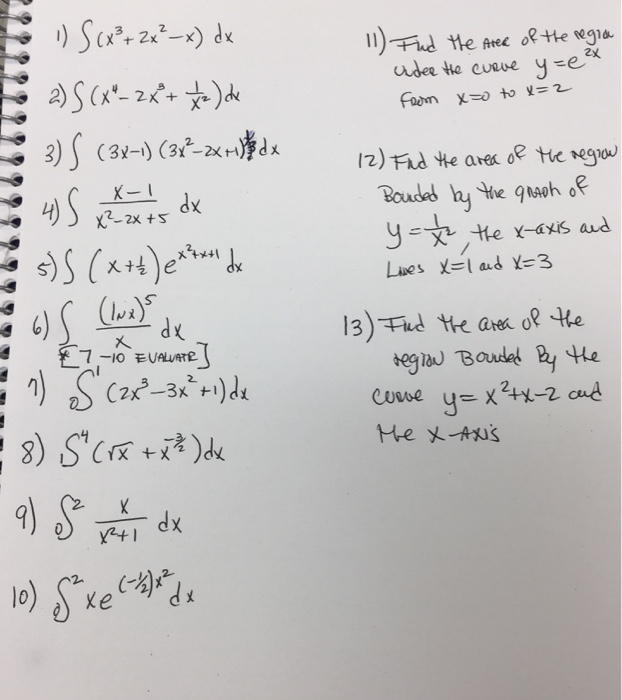 1) ∫(x³+2x²-x) dx
2) ∫(x⁴-2x³+1/x²)dx
3) ∫ (3x-1)(3x²-2x+1) dx
4) ∫ x-1/x²-2x+5 dx
5) ∫(x+½)e^x²+x+1 dx
6) ∫ (lnx)⁵/x dx
*[7-10 EVALUATE]
7) ₀∫¹(2x³-3x²+1)dx
8) ∫⁴(√x+x^-3/2)dx
9) ₀∫² x/x²+1 dx
10) ₀∫²xe^(-½)x²dx
11) Find the Area of the region
under the curve y=e^2x
from x=0 to x=2
12) Find the area of the region
Bounded by the graph of
y=1/x², the x-axis and
Lines x=1 and x=3
13) Find the area of the
region Bounded By the
curve y=x²+x-2 and
the X-AXIS